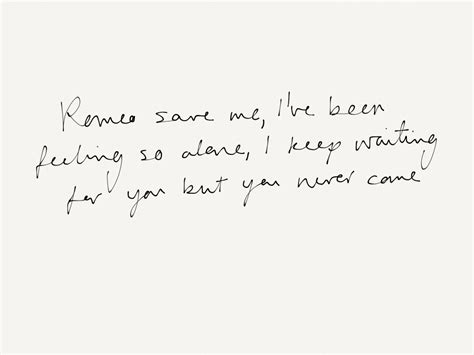 Romeo save me, I've been
feeling so alone, I keep waiting
for you but you never come